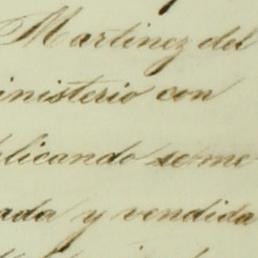 Martinez del
inisterio con
licando se me
ada y vendida